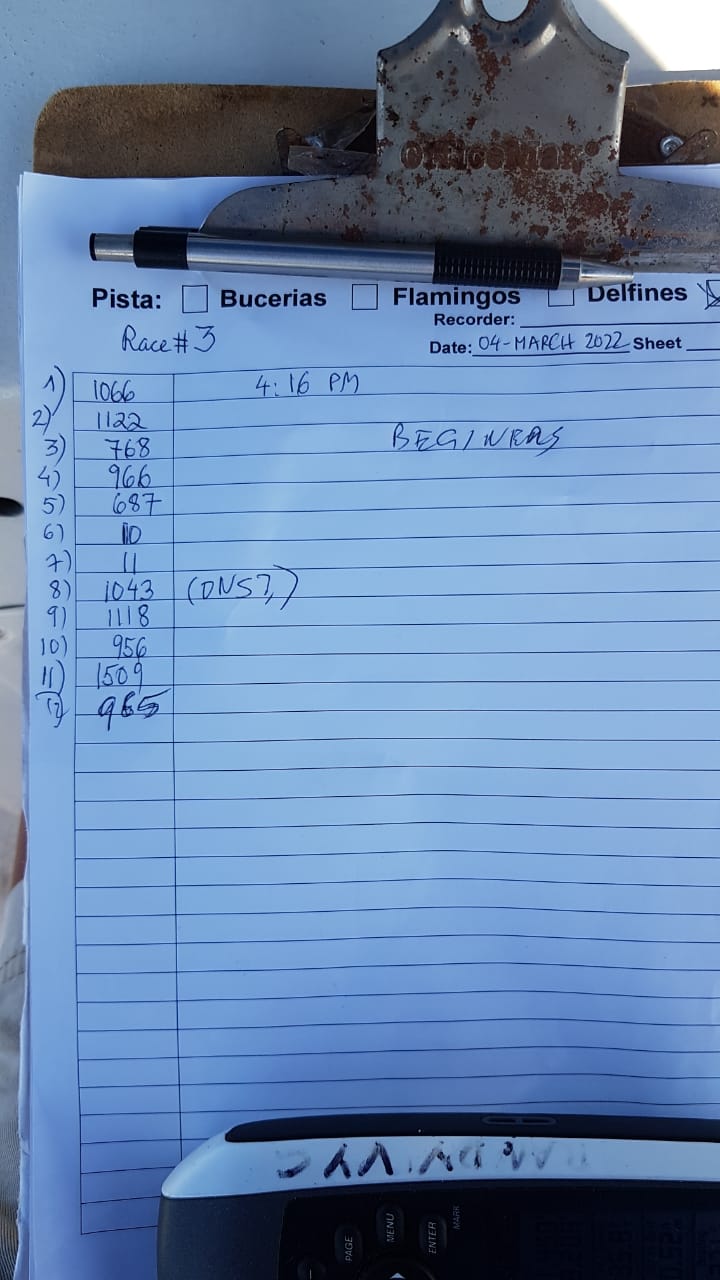 OfficeMax®
Pista: Bucerias Flamingos Delfines
Race # 3
Recorder:
Date: 04-MARCH 2022 Sheet
1) 1066 4:16 PM
2) 1122
BEGINERS
3) 768
4) 966
5) 687
6) 10
7) 11
8) 1043 (DNS?)
9) 1118
10) 956
11) 1509
12) 965
PAGE
MENU
ENTER
MARK